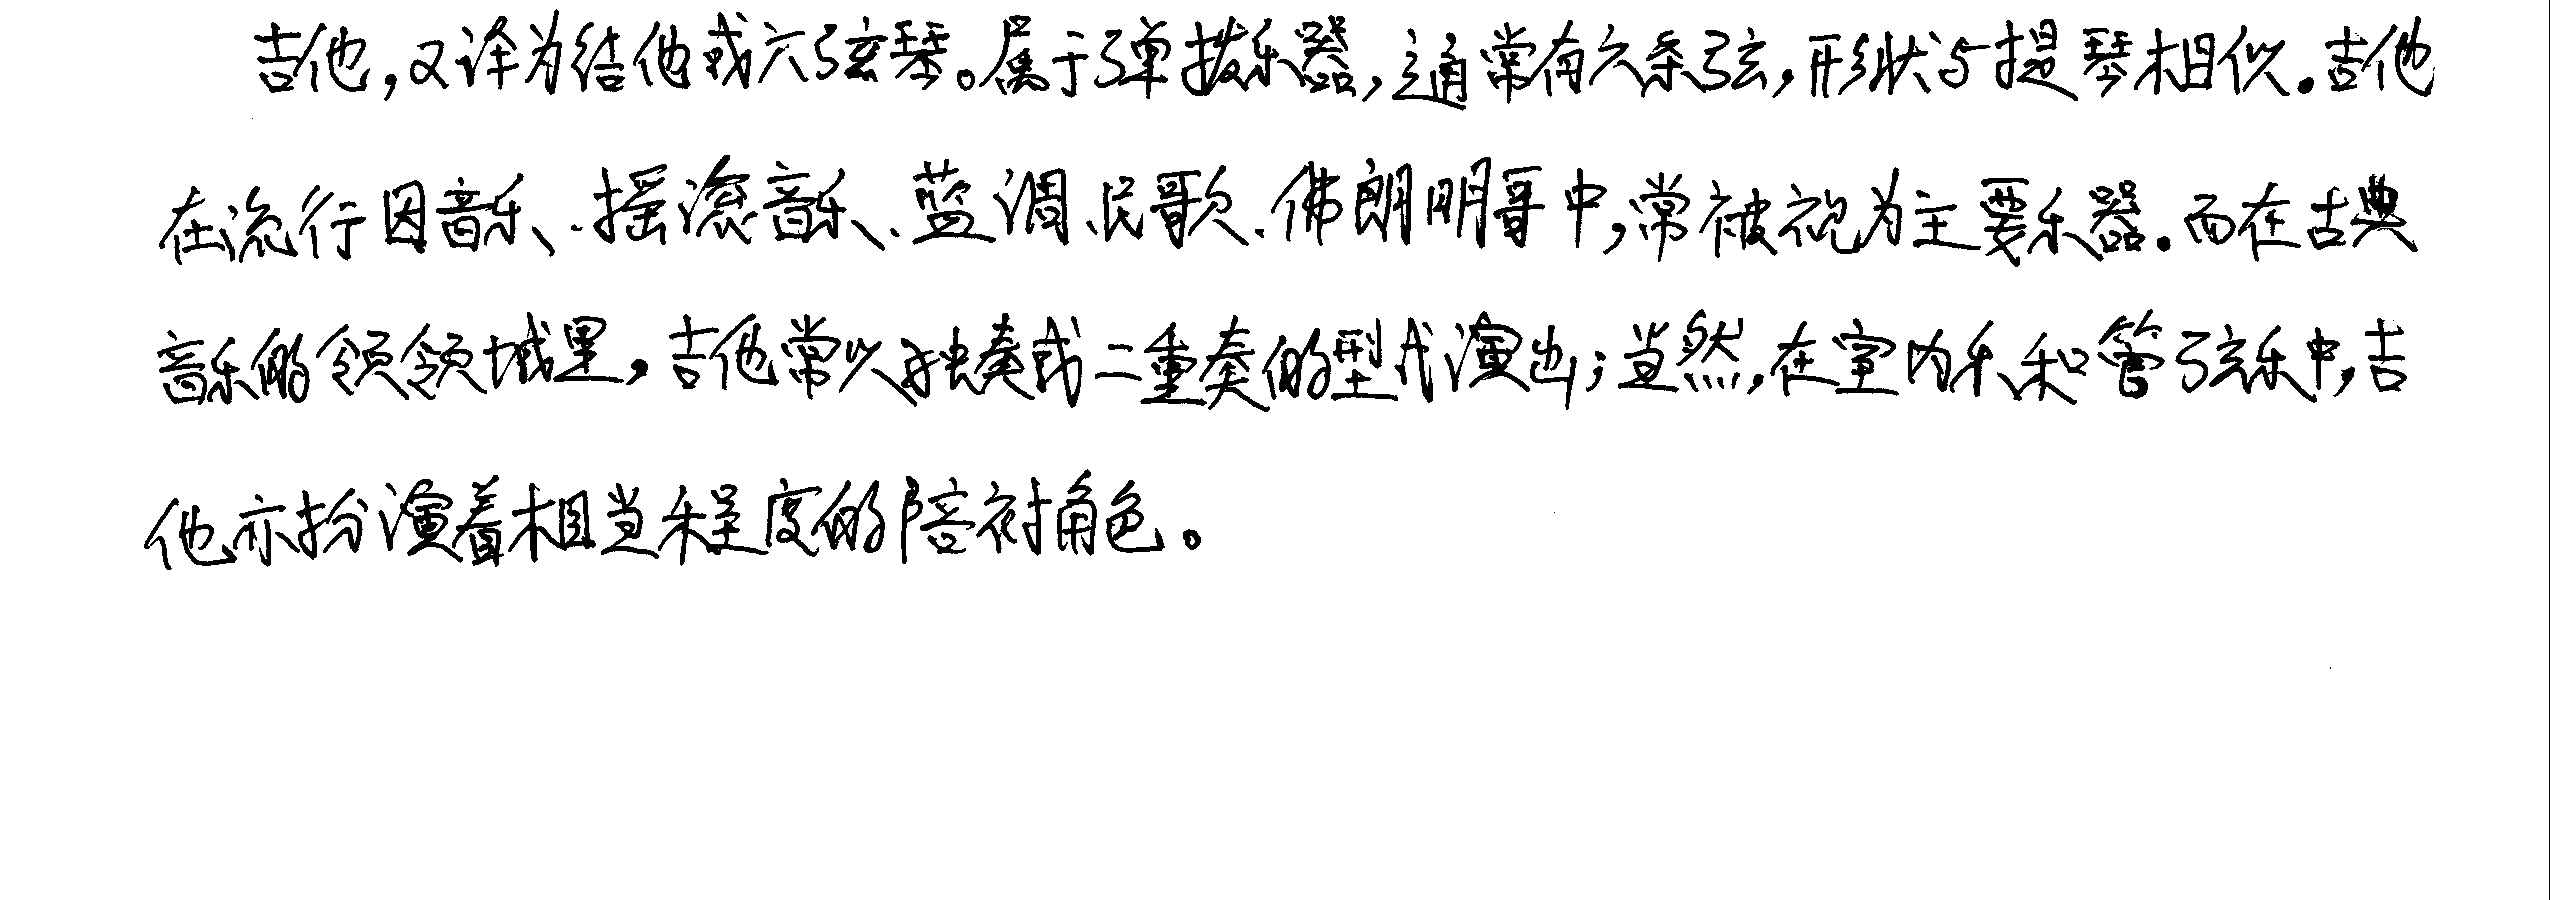 吉他，又译为结他或六弦琴。属于弹拨乐器，通常有六条弦，形状与提琴相似。吉他
在流行因音乐、摇滚音乐、蓝调、民歌、佛朗明哥中，常被视为主要乐器。而在古典
音乐的领领域里，吉他常以独奏或二重奏的型式演出；当然，在室内乐和管弦乐中，吉
他亦扮演着相当程度的陪衬角色。